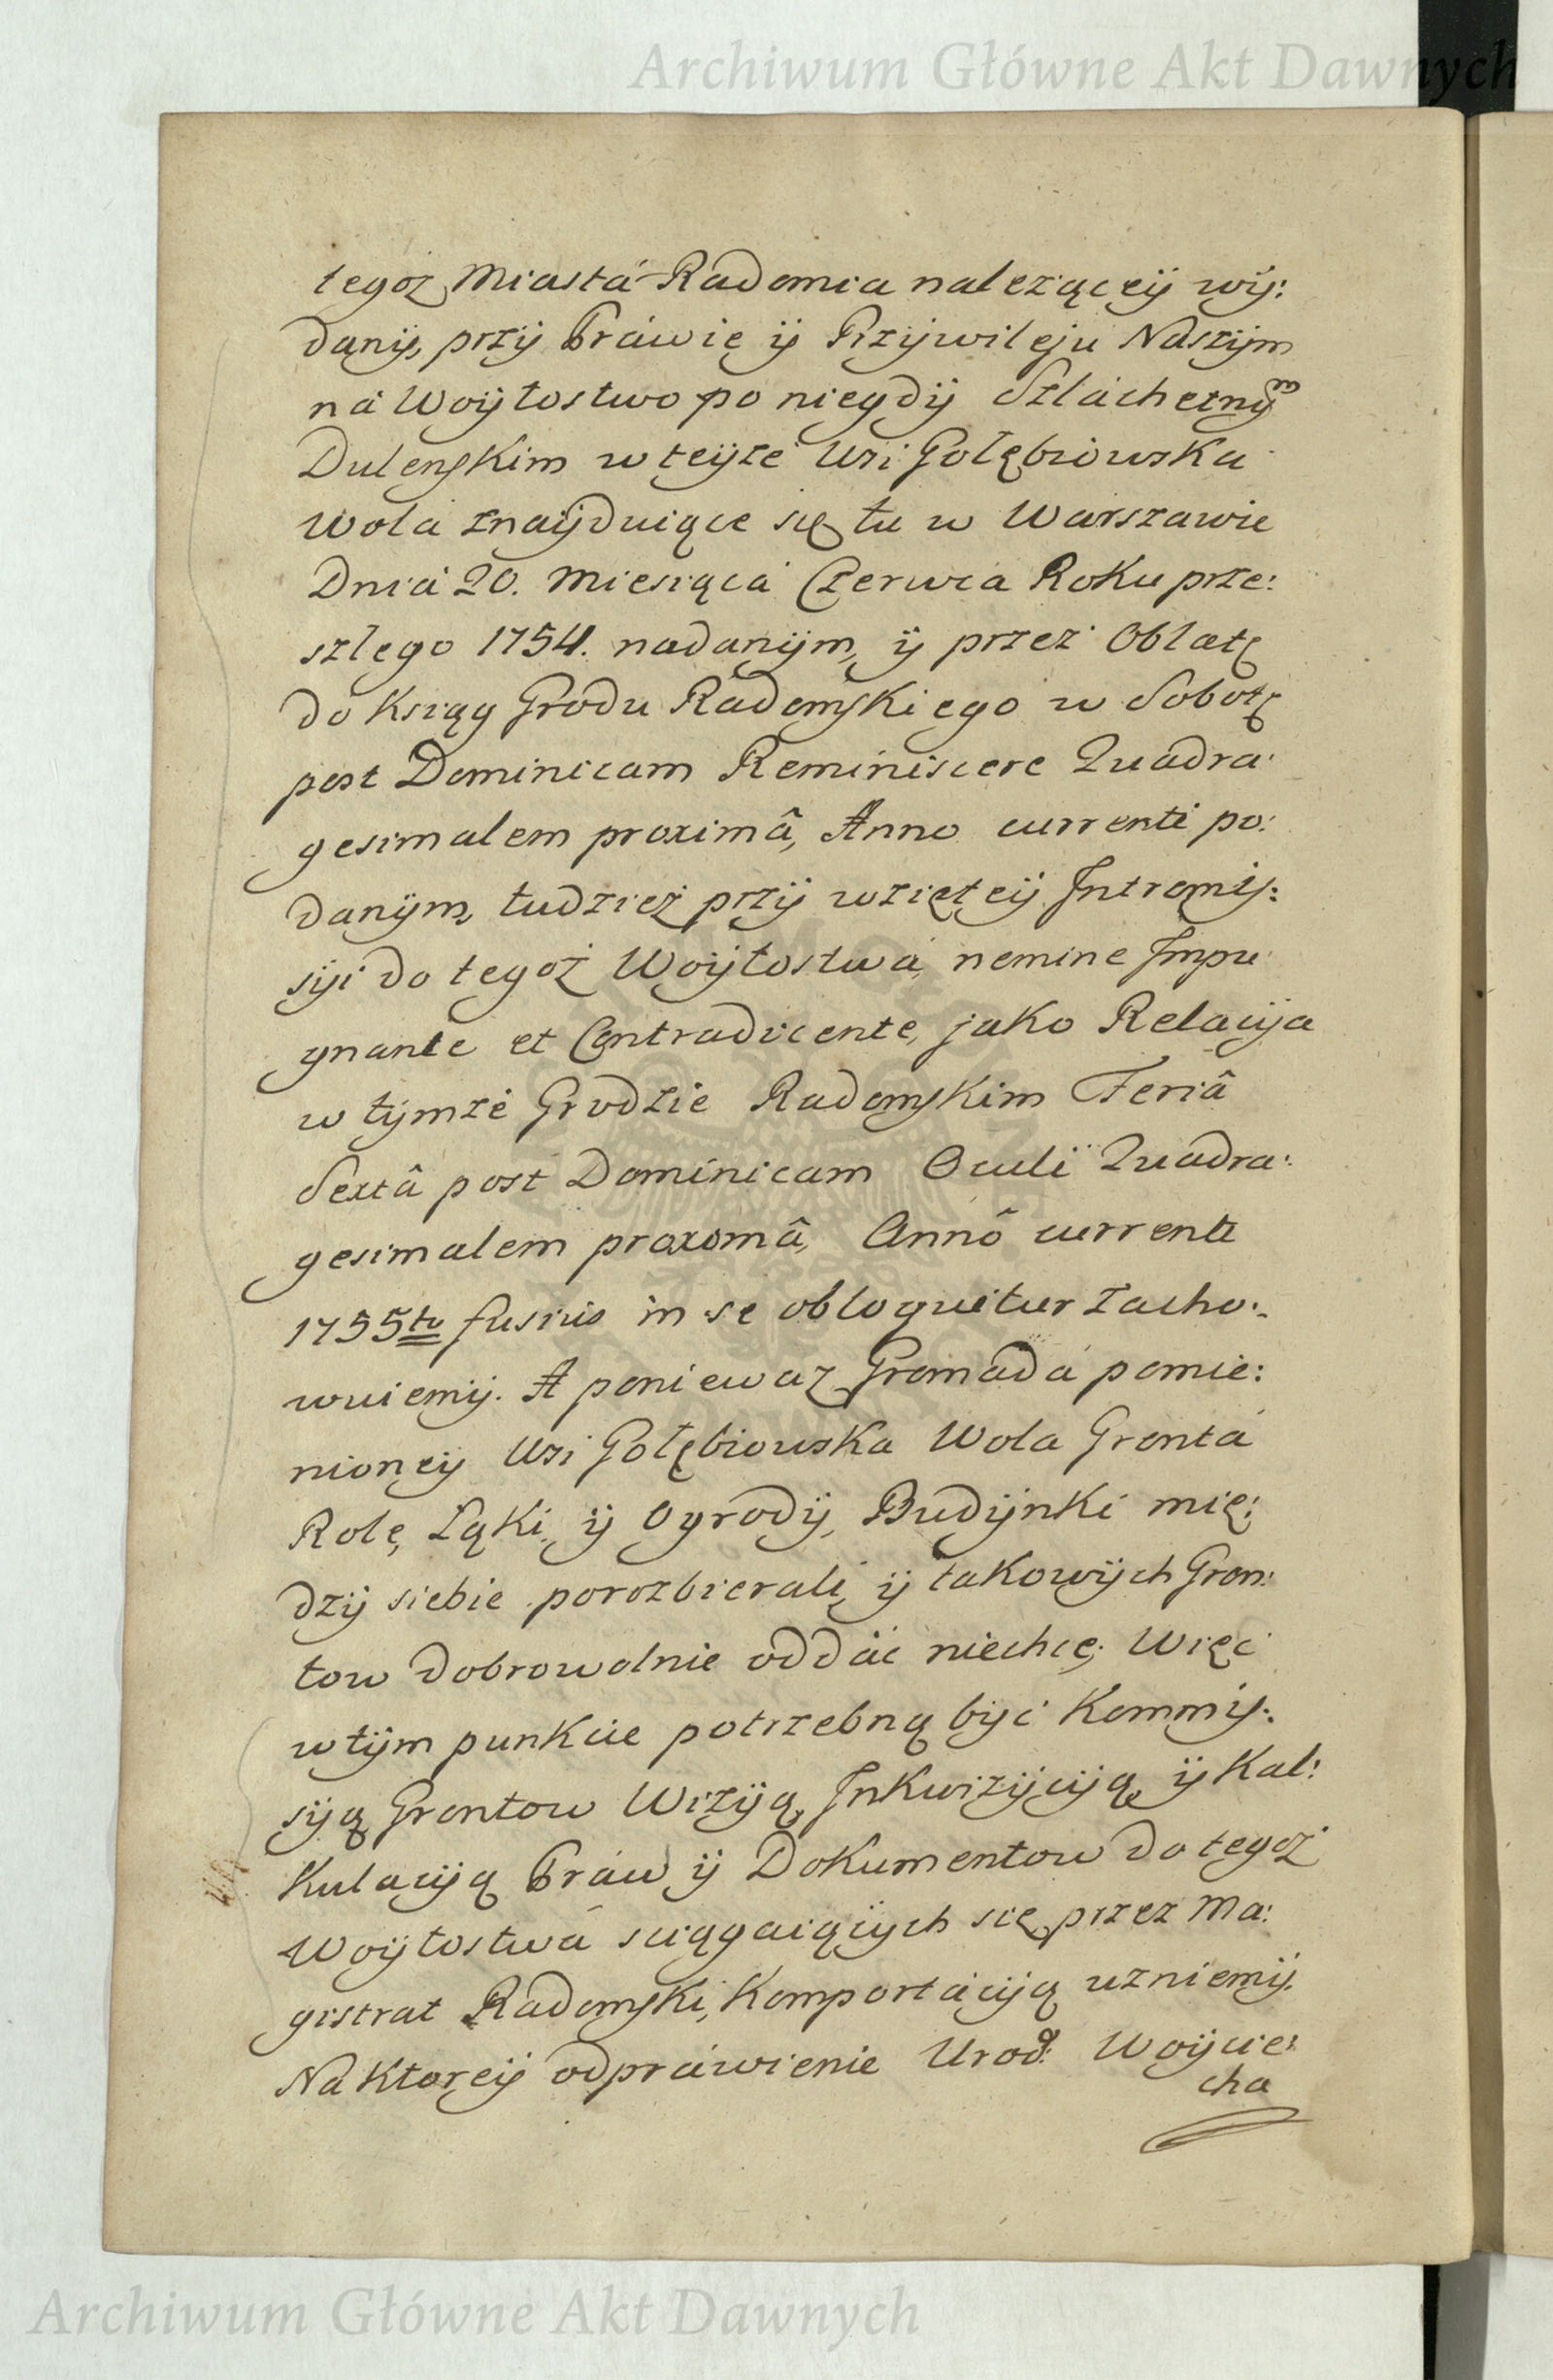 Archiwum Główne Akt Dawnych
tegoż Miastá Radomia należącÿ wÿ:
danÿ, przÿ Práwie ÿ Przÿwileju Naszÿm
ná Woÿtostwo po niegdÿ Szláchetnÿm
Dulenskim w teÿże Wsi Gołębiowska
Wola znaÿduiące się tu w Warszawie
Dniá 20. Miesiącá Czerwca Roku prze:
szlego 1754. nadanÿm, ÿ przez Oblatę
do Ksiąg Grodu Radomskiego w Sobotę
post Dominicam Reminiscere Quadra:
gesimalem proximâ, Anno currenti po:
danÿm, tudzież przÿ wziętеÿ Intromis:
sÿi do tegoż Woÿtostwá, nemine Impu:
gnante et Contradicente, jako Relacÿa
w tÿmże Grodzie Radomskim Feriâ
Sextâ post Dominicam Oculi Quadra:
gesimalem proxomâ, Annô currenti
1755to fusius in se obloquitur zacho:
wuiemÿ. A poniewaz Gromadá pomie:
nioney Wsi Gołębiowska Wola Grontá
Role, Łąki, ÿ Ogrodÿ, Budÿnki mię:
dzÿ siebie porozbierali, ÿ takowÿch Gron:
tow dobrowolnie oddáć niechcę; Więc
w tÿm punkcie potrzebną bÿć Kommis:
sÿą Grontow Wizÿą, Inkwizÿcÿą, ÿ Kal:
kulacÿą Práw ÿ Dokumentow do tegoż
Woÿtostwá sciągaiącÿch się przez Ma:
gistrat Radomski, Komportácÿą uzniemÿ.
Ná ktoreÿ odpráwienie Urod: Woÿcie:
cha
Archiwum Główne Akt Dawnych